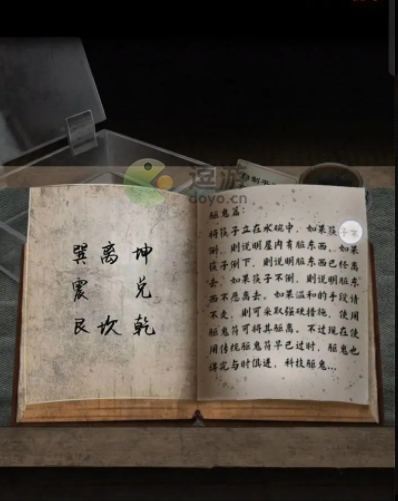 逗游
doyo.cn
巽 离 坤
震 兑
艮 坎 乾
驱鬼篇：
将筷子立在水碗中，如果筷子不
倒，则说明屋内有脏东西。如果
筷子倒下，则说明脏东西已经离
去。如果筷子不倒，则说明脏东
西不愿离去。如果温和的手段请
不走，则可采取强硬措施，使用
驱鬼符可将其驱离。不过现在使
用传统驱鬼符早已过时，驱鬼也
得与时俱进，科技驱鬼...